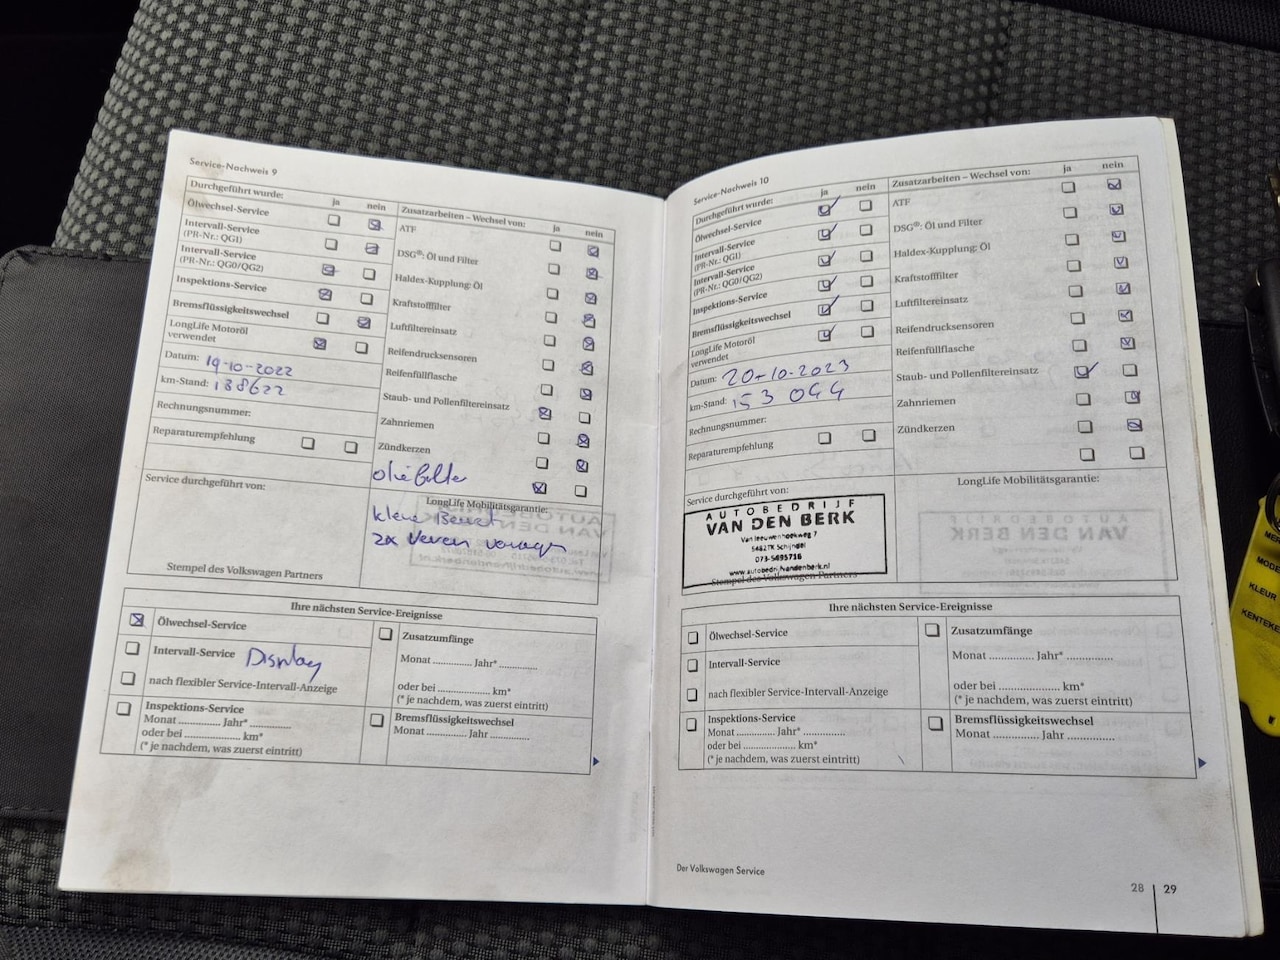 Service-Nachweis 9
Durchgeführt wurde: ja nein
Ölwechsel-Service
Intervall-Service
(PR-Nr.: QG1)
Intervall-Service
(PR-Nr.: QG0/QG2)
Inspektions-Service
Bremsflüssigkeitswechsel
LongLife Motoröl
verwendet
Datum: 19-10-2022
km-Stand: 138622
Rechnungsnummer:
Reparaturempfehlung
Zusatzarbeiten – Wechsel von: ja nein
ATF
DSG®: Öl und Filter
Haldex-Kupplung: Öl
Kraftstofffilter
Luftfiltereinsatz
Reifendrucksensoren
Reifenfüllflasche
Staub- und Pollenfiltereinsatz
Zahnriemen
Zündkerzen
Service durchgeführt von:
Stempel des Volkswagen Partners
LongLife Mobilitätsgarantie:
2x
Ihre nächsten Service-Ereignisse
Ölwechsel-Service
Intervall-Service Display
nach flexibler Service-Intervall-Anzeige
Inspektions-Service
Monat ............. Jahr* .............
oder bei ..................... km*
(* je nachdem, was zuerst eintritt)
Zusatzumfänge
Monat ............. Jahr* .............
oder bei ..................... km*
(* je nachdem, was zuerst eintritt)
Bremsflüssigkeitswechsel
Monat ............. Jahr .............
Service-Nachweis 10
Durchgeführt wurde: ja nein
Ölwechsel-Service
Intervall-Service
(PR-Nr.: QG1)
Intervall-Service
(PR-Nr.: QG0/QG2)
Inspektions-Service
Bremsflüssigkeitswechsel
LongLife Motoröl
verwendet
Datum: 20-10-2023
km-Stand: 153 044
Rechnungsnummer:
Reparaturempfehlung
Zusatzarbeiten – Wechsel von: ja nein
ATF
DSG®: Öl und Filter
Haldex-Kupplung: Öl
Kraftstofffilter
Luftfiltereinsatz
Reifendrucksensoren
Reifenfüllflasche
Staub- und Pollenfiltereinsatz
Zahnriemen
Zündkerzen
Service durchgeführt von:
AUTOBEDRIJF
VAN DEN BERK
Van Leeuwenhoekweg 7
5482TK Schijndel
073-5495716
www.autobedrijfvandenberk.nl
Stempel des Volkswagen Partners
LongLife Mobilitätsgarantie:
Ihre nächsten Service-Ereignisse
Ölwechsel-Service
Intervall-Service
nach flexibler Service-Intervall-Anzeige
Inspektions-Service
Monat ............. Jahr* .............
oder bei ..................... km*
(* je nachdem, was zuerst eintritt)
Zusatzumfänge
Monat ............. Jahr* .............
oder bei ..................... km*
(* je nachdem, was zuerst eintritt)
Bremsflüssigkeitswechsel
Monat ............. Jahr .............
Der Volkswagen Service
28 29
KLEUR